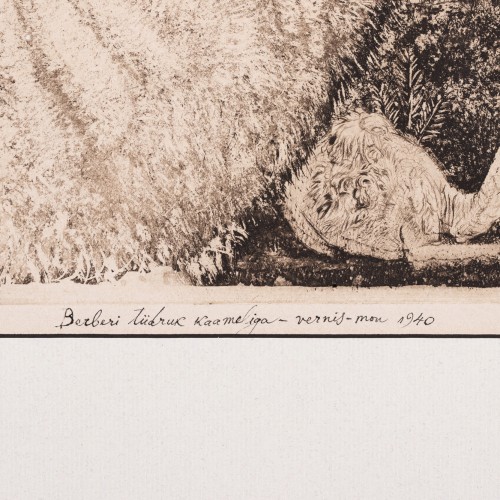 Berberi tüdruk kaameliga - vernis-mou 1940